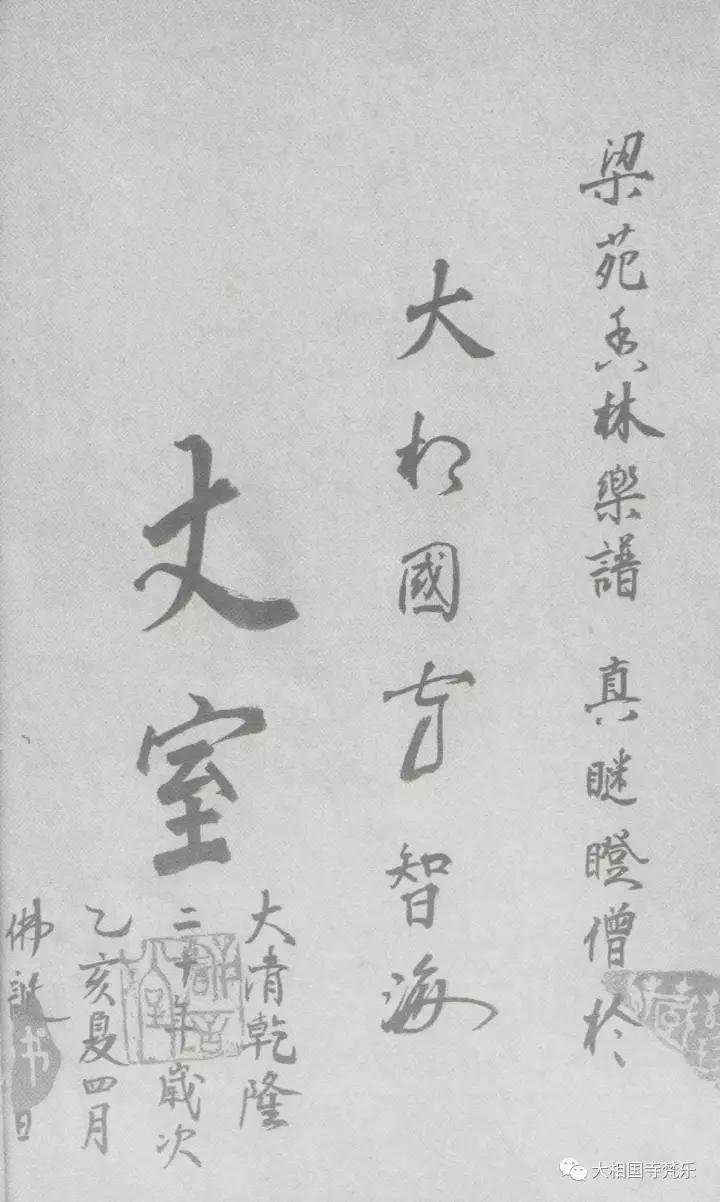 梁苑香林樂譜 真瞇瞪僧於
大相國寺智海
丈室
大清乾隆
二十年歲次
乙亥夏四月
佛誕日
书
大相国寺梵乐